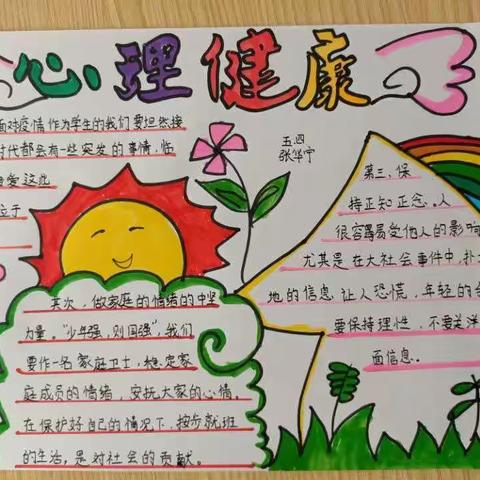 心理健康
面对疫情作为学生的我们要坦然接
时代都会有一些突发的事情,临
爱这些
位于
五四
张华宁
其次,做家庭的情绪的中坚
力量。“少年强,则国强”,我们
要作一名家庭卫士,稳定家
庭成员的情绪,安抚大家的心情,
在保护好自己的情况下,按步就班
的生活,是对社会的贡献。
第三、保
持正知正念。人
很容易受他人的影响
尤其是在大社会事件中,扑
地的信息,让人恐慌,年轻的
要保持理性,不要关注
面信息。